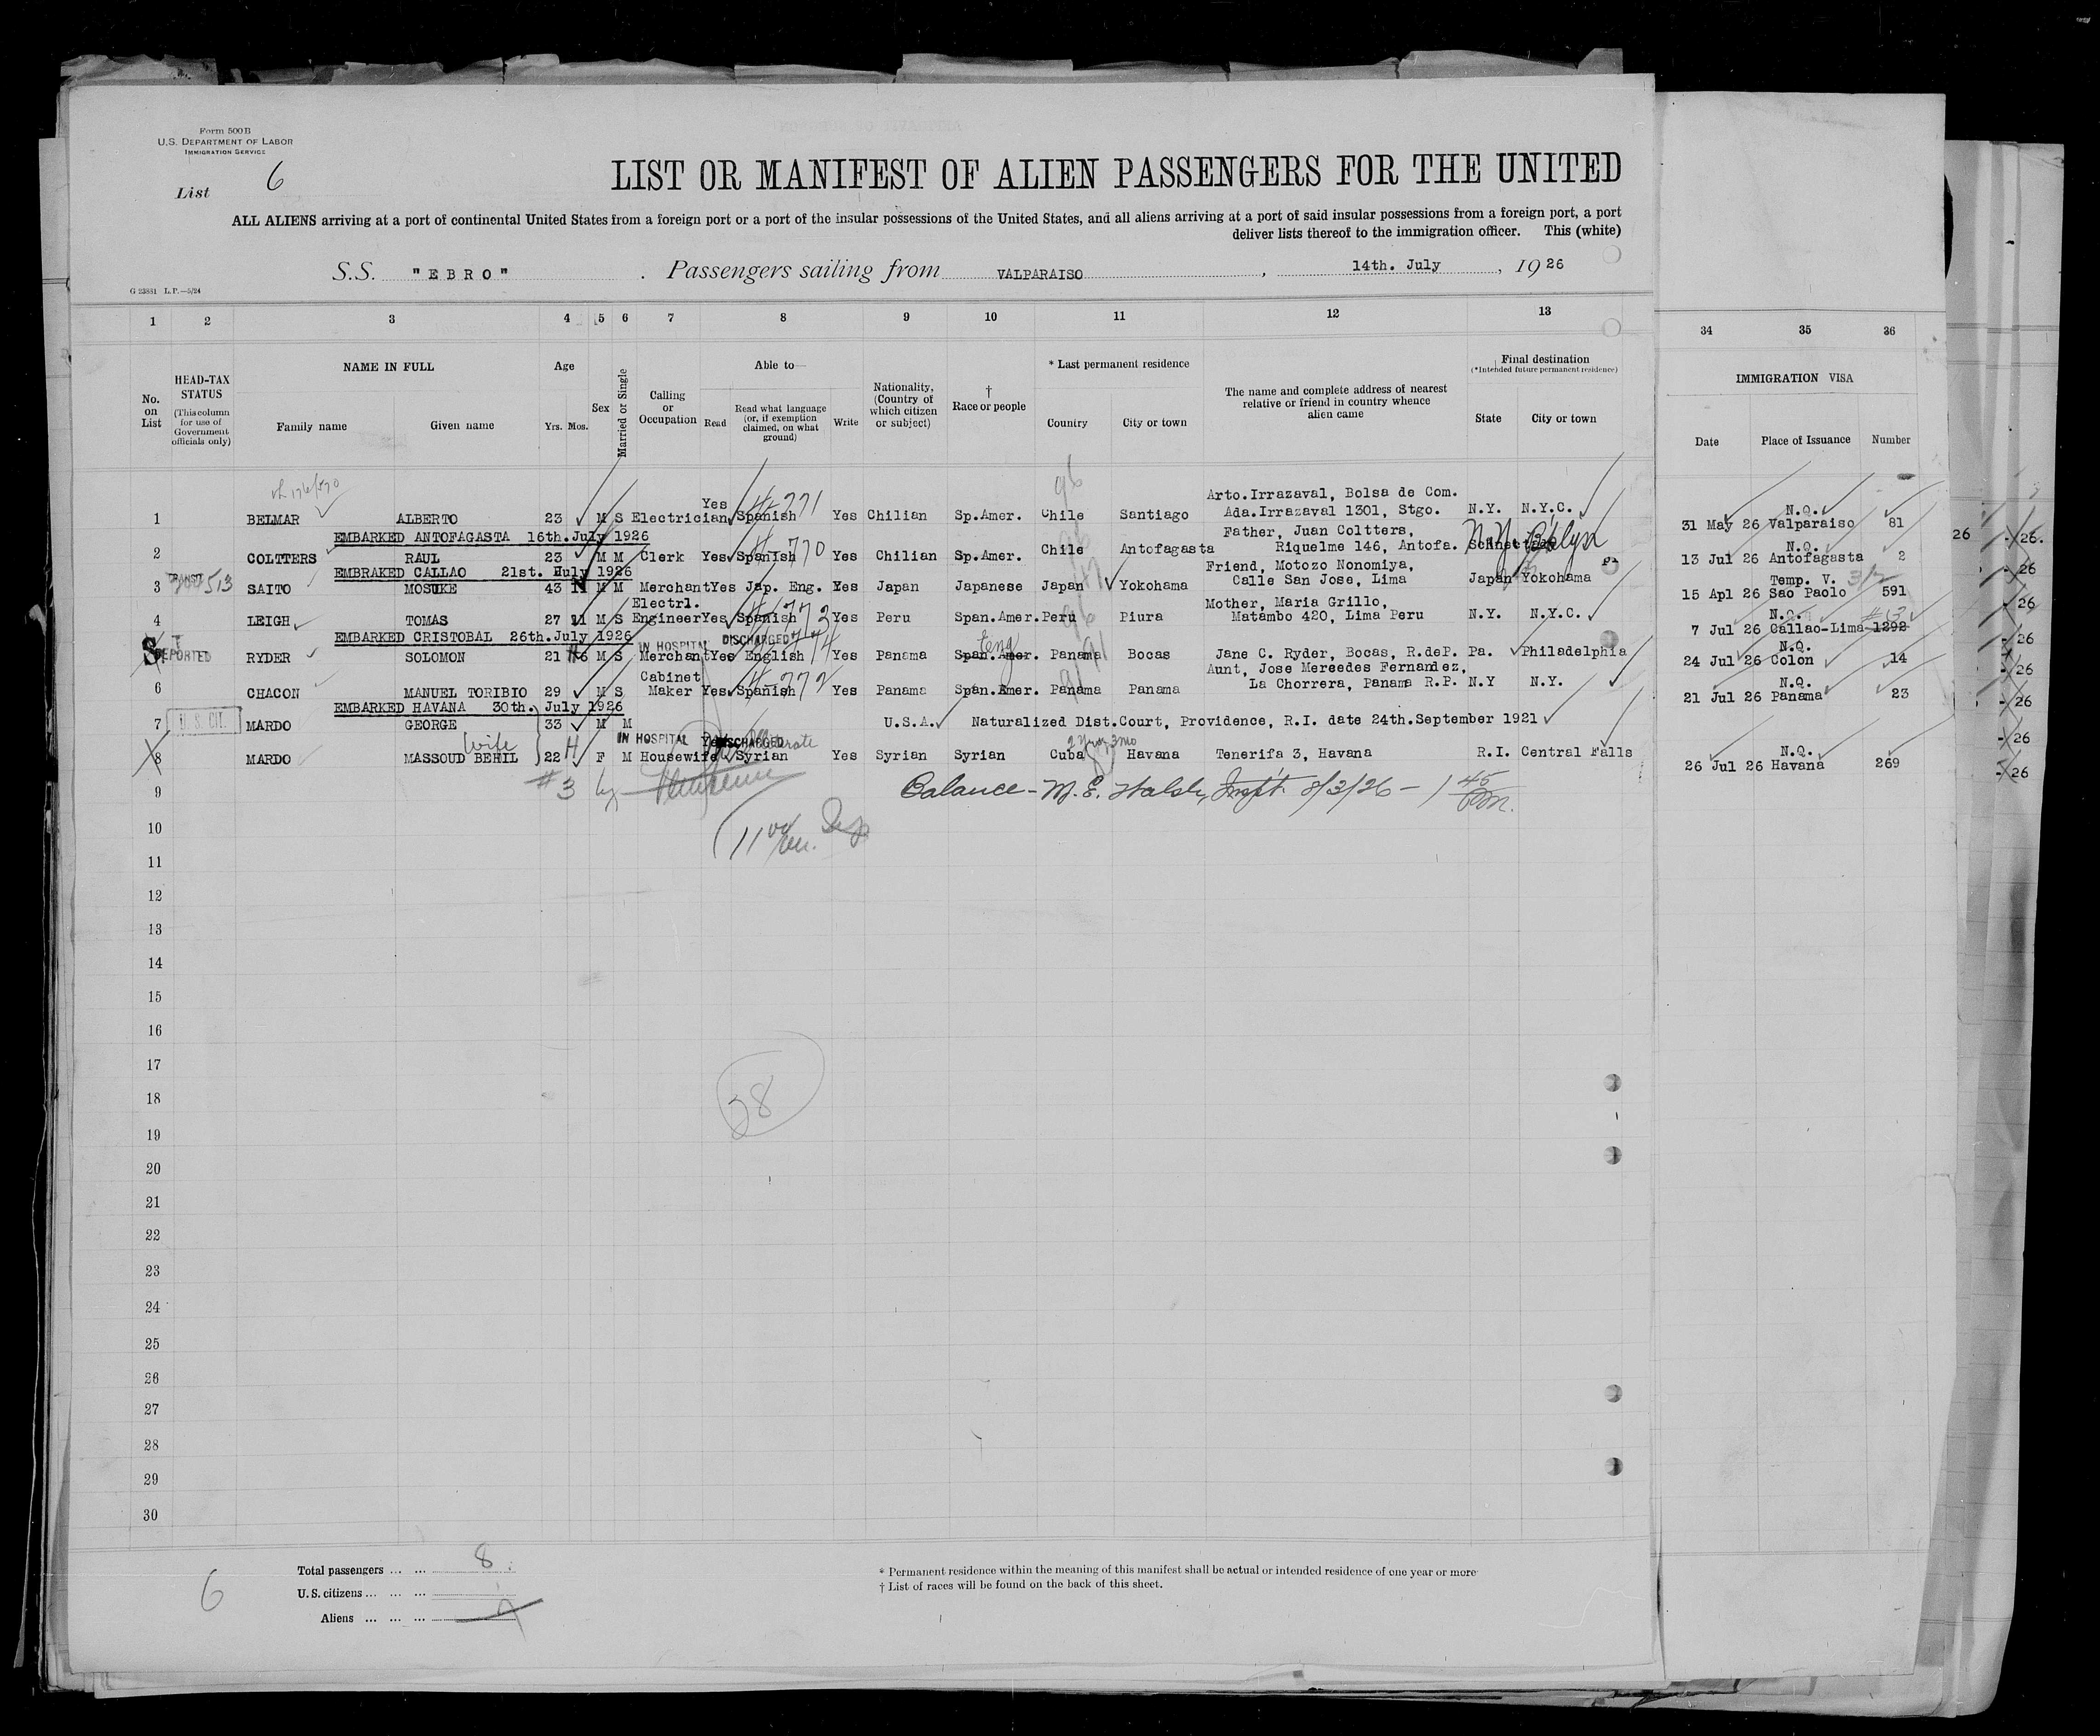 Form 500B
U.S. DEPARTMENT OF LABOR
IMMIGRATION SERVICE
List 6
LIST OR MANIFEST OF ALIEN PASSENGERS FOR THE UNITED
ALL ALIENS arriving at a port of continental United States from a foreign port or a port of the insular possessions of the United States, and all aliens arriving at a port of said insular possessions from a foreign port, a port
deliver lists thereof to the immigration officer. This (white)
S.S. "EBRO" . Passengers sailing from VALPARAISO , 14th. July , 1926
G 23831 L.P.—5/24
1 2 3 4 5 6 7 8 9 10 11 12 13 34 35 36
No. on List
HEAD-TAX STATUS
(This column for use of Government officials only)
NAME IN FULL
Family name Given name
Age
Yrs. Mos.
Sex
Married or Single
Calling or Occupation
Able to—
Read
Read what language (or, if exemption claimed, on what ground)
Write
Nationality, (Country of which citizen or subject)
† Race or people
* Last permanent residence
Country City or town
The name and complete address of nearest relative or friend in country whence alien came
Final destination
(*Intended future permanent residence)
State City or town
IMMIGRATION VISA
Date Place of Issuance Number
Yes 4-771 Arto.Irrazaval, Bolsa de Com. N.Q.
1 BELMAR ALBERTO 23 M S Electrician Spanish Yes Chilian Sp.Amer. Chile Santiago Ada.Irrazaval 1301, Stgo. N.Y. N.Y.C. 31 May 26 Valparaiso 81
EMBARKED ANTOFAGASTA 16th.July 1926
4-770 Father, Juan Coltters, N.Y. Bklyn N.Q.
2 COLTTERS RAUL 23 M M Clerk Yes Spanish Yes Chilian Sp.Amer. Chile Antofagasta Riquelme 146, Antofa. 13 Jul 26 Antofagasta 2
EMBRAKED CALLAO 21st. July 1926
TRANSIT 513 Friend, Motozo Nonomiya, Temp. V.
3 SAITO MOSUKE 43 11 M M Merchant Yes Jap. Eng. Yes Japan Japanese Japan Yokohama Calle San Jose, Lima Japan Yokohama 15 Apl 26 Sao Paolo 591
Electrl. 4-773 Mother, Maria Grillo, N.Q.
4 LEIGH TOMAS 27 11 M S Engineer Yes Spanish Yes Peru Span.Amer. Peru Piura Matambo 420, Lima Peru N.Y. N.Y.C. 7 Jul 26 Callao-Lima 1292
EMBARKED CRISTOBAL 26th.July 1926
IN HOSPITAL DISCHARGED Eng N.Q.
RYDER SOLOMON 21 6 M S Merchant Yes English Yes Panama Span.Amer. Panama Bocas Jane C. Ryder, Bocas, R.deP. Pa. Philadelphia 24 Jul 26 Colon 14
Cabinet 4-772 Aunt, Jose Mercedes Fernandez, N.Q.
6 CHACON MANUEL TORIBIO 29 M S Maker Yes Spanish Yes Panama Span.Amer. Panama Panama La Chorrera, Panama R.P. N.Y N.Y. 21 Jul 26 Panama 23
EMBARKED HAVANA 30th. July 1926
7 U.S. CIT. MARDO GEORGE 33 M M U.S.A. Naturalized Dist.Court, Providence, R.I. date 24th.September 1921
Wife IN HOSPITAL DISCHARGED 2 yrs 3 mo N.Q.
8 MARDO MASSOUD BEHIL 22 F M Housewife Syrian Yes Syrian Syrian Cuba Havana Tenerifa 3, Havana R.I. Central Falls 26 Jul 26 Havana 269
9 #3 by Balance - M.E. Walsh, Inspt. 8/3/26 - 1 45 P.m.
10
11
12
13
14
15
16
17
18 38
19
20
21
22
23
24
25
26
27
28
29
30
Total passengers ... ... 8
U.S. citizens ... ... ...
Aliens ... ... ...
6
* Permanent residence within the meaning of this manifest shall be actual or intended residence of one year or more
† List of races will be found on the back of this sheet.